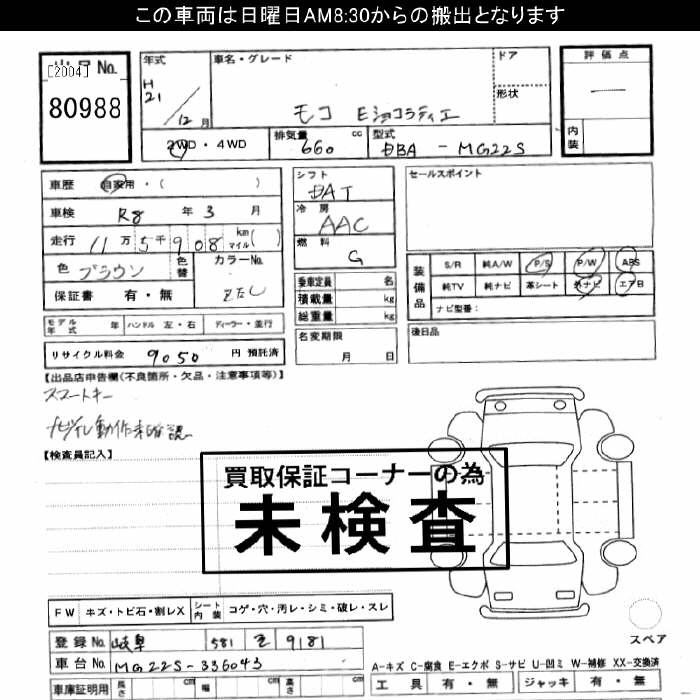 この車両は日曜日AM8:30からの搬出となります
[2004] No.
80988
年式 H21/12月
車名・グレード モコ Eショコラティエ
ドア
形状
評価点 —
内装
2WD・4WD 排気量 660 cc 型式 DBA-MG22S
車歴 自家用・( )
車検 R8年3月
走行 11万5千908 km マイル( )
色 ブラウン 色替 カラーNo.
保証書 有・無
シフト DAT
冷房 AAC
燃料 G
乗車定員 名
積載量 kg
総重量 kg
セールスポイント
装備品 S/R 純A/W P/S P/W ABS
純TV 純ナビ 革シート 外ナビ エアB
ナビ型番:
モデル年式 年 ハンドル 左・右 ディーラー・並行
名変期限 月 日
後日品
リサイクル料金 9050 円 預託済
【出品店申告欄(不良箇所・欠品・注意事項等)】
スマートキー
ナビ/TV動作未確認
【検査員記入】
買取保証コーナーの為
未検査
FW キズ・トビ石・割レX シート内装 コゲ・穴・汚レ・シミ・破レ・スレ
スペア
登録No. 岐阜 581 9181
車台No. MG22S-336043
A-キズ C-腐食 E-エクボ S-サビ U-凹ミ W-補修 XX-交換済
車庫証明用 長さ cm 幅 cm 高さ cm
工具 有・無 ジャッキ 有・無